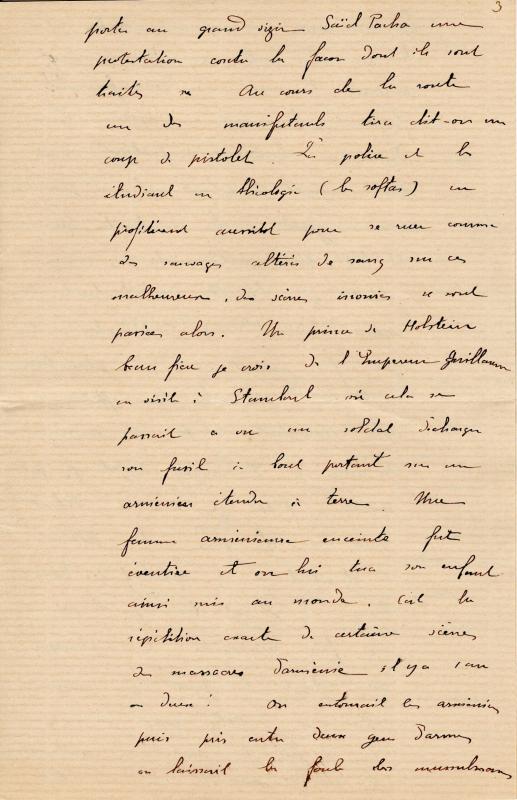 3
porter au grand vizir Saïd Pacha une
protestation contre la façon dont ils sont
traités. Au cours de la route
un des manifestants tira dit-on un
coup de pistolet. La police et les
étudiants en théologie (les softas) en
profitèrent aussitôt pour se ruer comme
des sauvages altérés de sang sur ces
malheureux, des scènes inouies se sont
passées alors. Un prince de Holstein
beau frère je crois de l'Empereur Guillaume
en visite à Stamboul où cela se
passait a vu un soldat décharger
son fusil à bout portant sur un
arménien étendu à terre. Une
femme arménienne enceinte fut
éventrée et on lui tua son enfant
ainsi mis au monde. C'est la
répétition exacte de certaines scènes
des massacres d'arménie il y a 1 an
ou deux! On entourait les arméniens
puis pris entre deux gens d'armes
on laissait la foule des musulmans